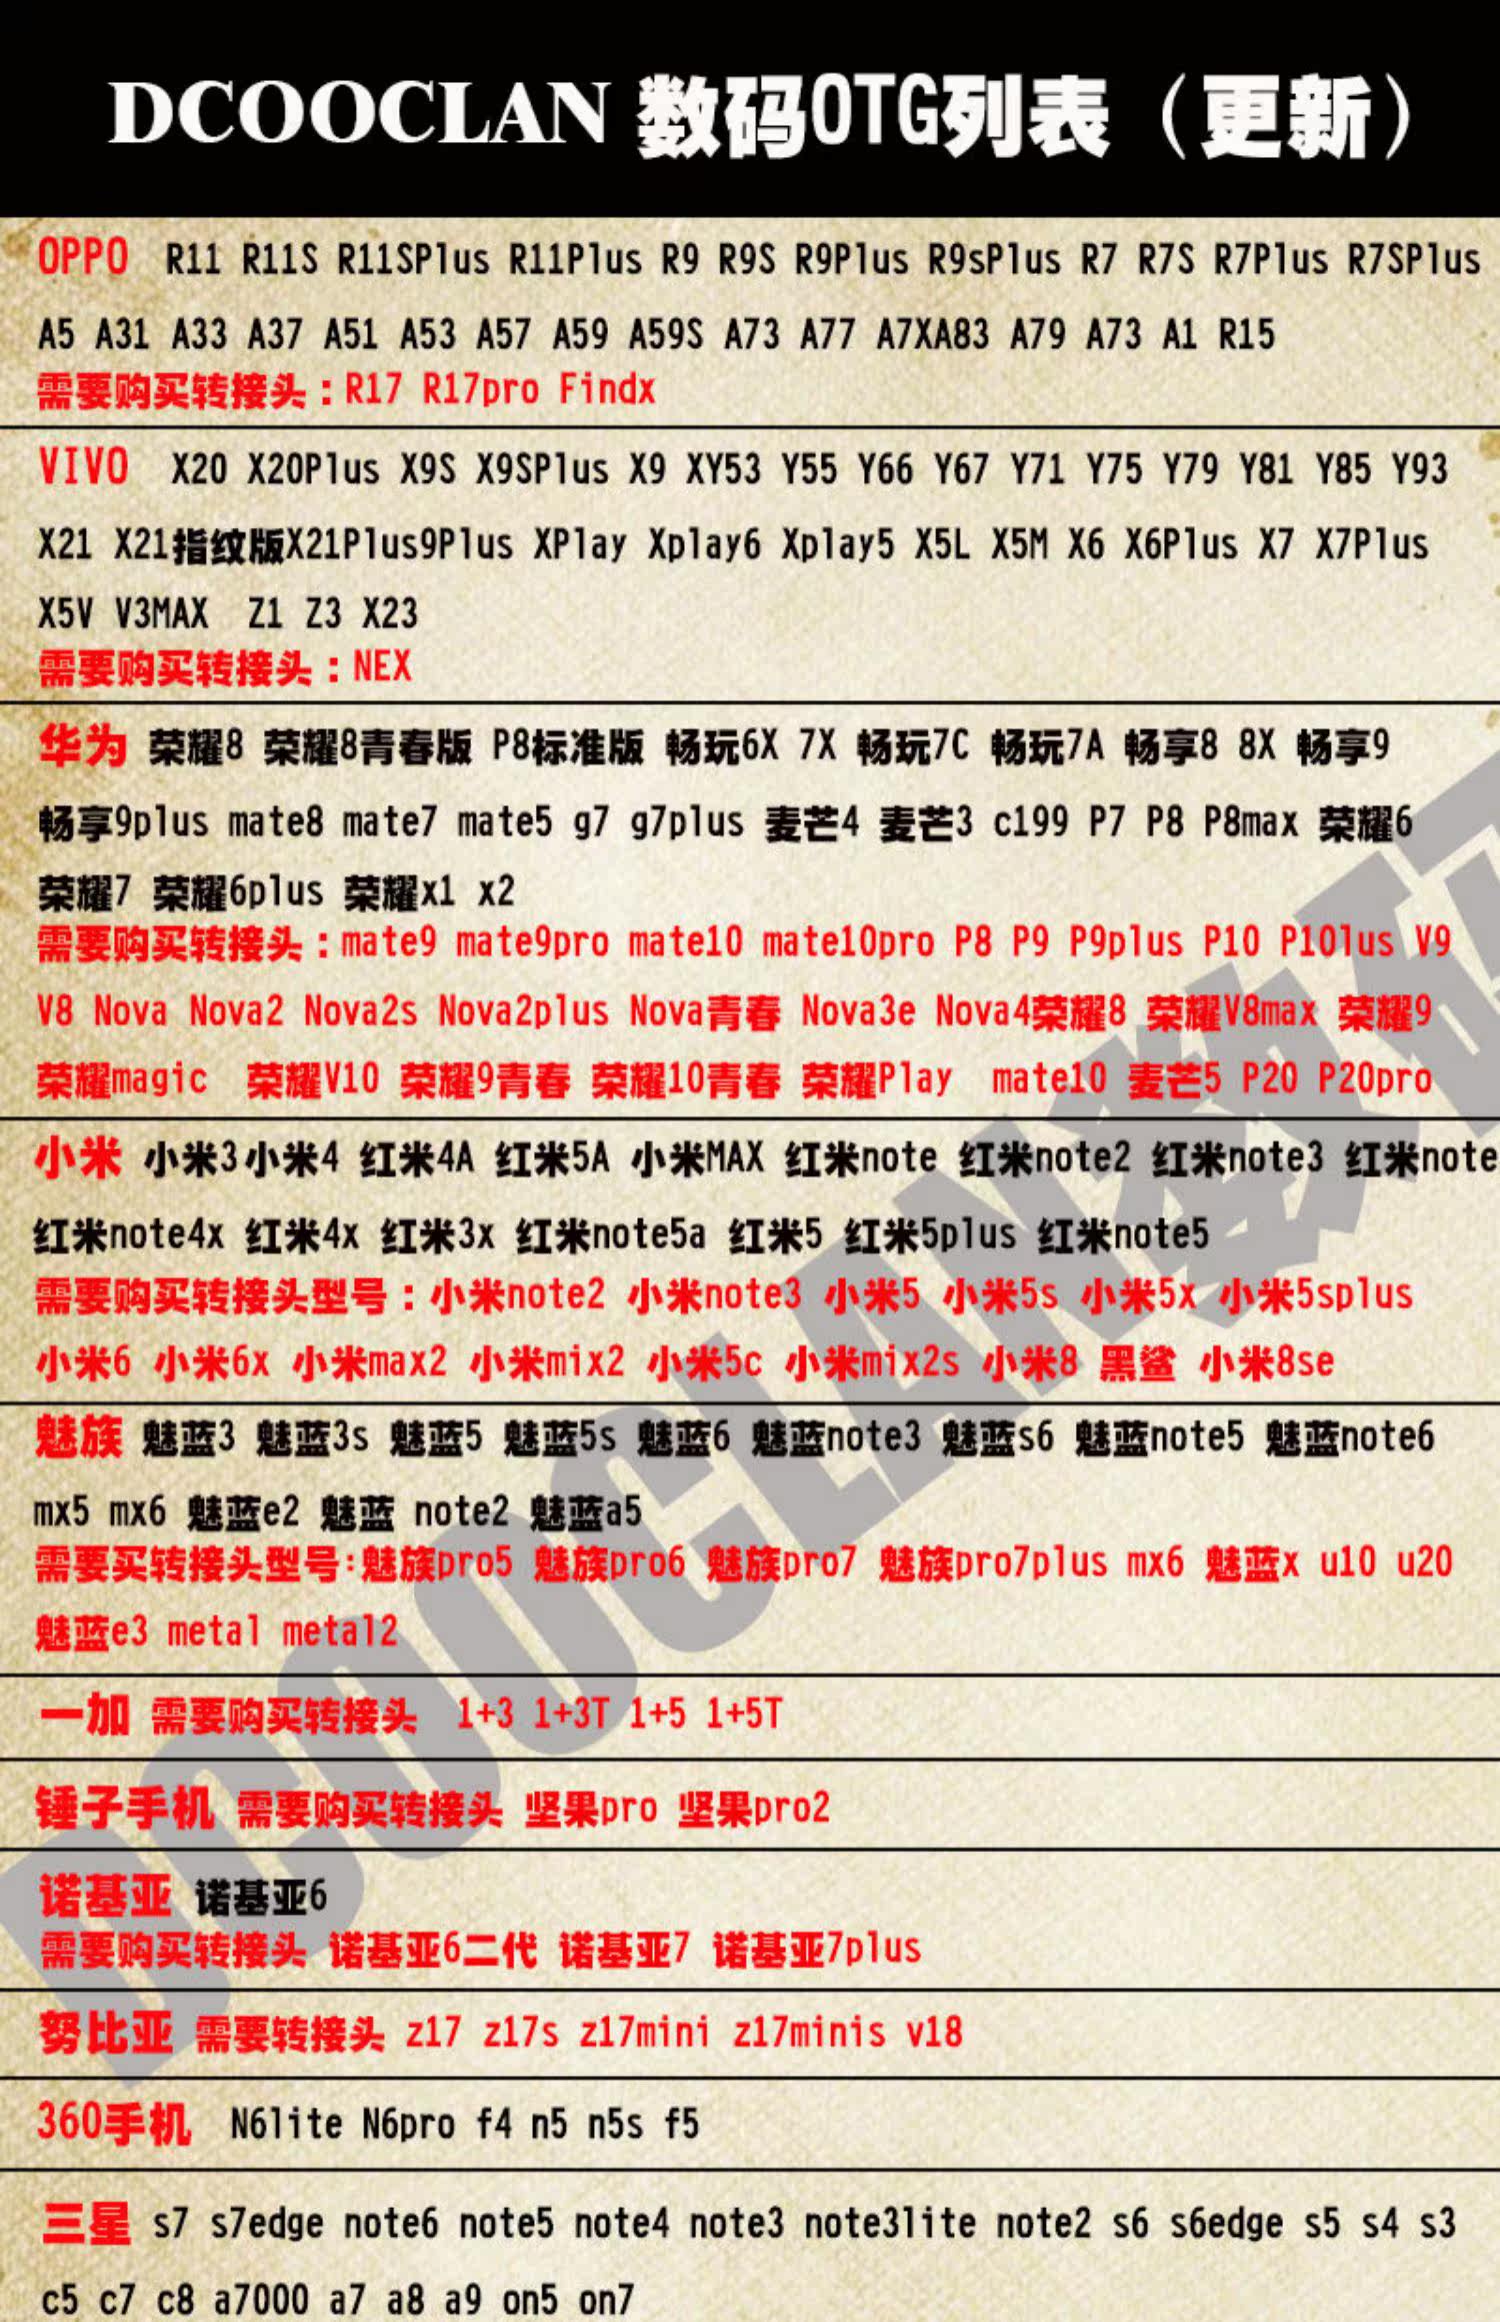 DCOOCLAN 数码OTG列表（更新）
OPPO R11 R11S R11SPlus R11Plus R9 R9S R9Plus R9sPlus R7 R7S R7Plus R7SPlus
A5 A31 A33 A37 A51 A53 A57 A59 A59S A73 A77 A7XA83 A79 A73 A1 R15
需要购买转接头：R17 R17pro Findx
VIVO X20 X20Plus X9S X9SPlus X9 XY53 Y55 Y66 Y67 Y71 Y75 Y79 Y81 Y85 Y93
X21 X21指纹版X21Plus9Plus XPlay Xplay6 Xplay5 X5L X5M X6 X6Plus X7 X7Plus
X5V V3MAX Z1 Z3 X23
需要购买转接头：NEX
华为 荣耀8 荣耀8青春版 P8标准版 畅玩6X 7X 畅玩7C 畅玩7A 畅享8 8X 畅享9
畅享9plus mate8 mate7 mate5 g7 g7plus 麦芒4 麦芒3 c199 P7 P8 P8max 荣耀6
荣耀7 荣耀6plus 荣耀x1 x2
需要购买转接头：mate9 mate9pro mate10 mate10pro P8 P9 P9plus P10 P10lus V9
V8 Nova Nova2 Nova2s Nova2plus Nova青春 Nova3e Nova4荣耀8 荣耀V8max 荣耀9
荣耀magic 荣耀V10 荣耀9青春 荣耀10青春 荣耀Play mate10 麦芒5 P20 P20pro
小米 小米3小米4 红米4A 红米5A 小米MAX 红米note 红米note2 红米note3 红米note
红米note4x 红米4x 红米3x 红米note5a 红米5 红米5plus 红米note5
需要购买转接头型号：小米note2 小米note3 小米5 小米5s 小米5x 小米5splus
小米6 小米6x 小米max2 小米mix2 小米5c 小米mix2s 小米8 黑鲨 小米8se
魅族 魅蓝3 魅蓝3s 魅蓝5 魅蓝5s 魅蓝6 魅蓝note3 魅蓝s6 魅蓝note5 魅蓝note6
mx5 mx6 魅蓝e2 魅蓝 note2 魅蓝a5
需要买转接头型号:魅族pro5 魅族pro6 魅族pro7 魅族pro7plus mx6 魅蓝x u10 u20
魅蓝e3 metal metal2
一加 需要购买转接头 1+3 1+3T 1+5 1+5T
锤子手机 需要购买转接头 坚果pro 坚果pro2
诺基亚 诺基亚6
需要购买转接头 诺基亚6二代 诺基亚7 诺基亚7plus
努比亚 需要转接头 z17 z17s z17mini z17minis v18
360手机 N6lite N6pro f4 n5 n5s f5
三星 s7 s7edge note6 note5 note4 note3 note3lite note2 s6 s6edge s5 s4 s3
c5 c7 c8 a7000 a7 a8 a9 on5 on7
DCOOCLAN数码